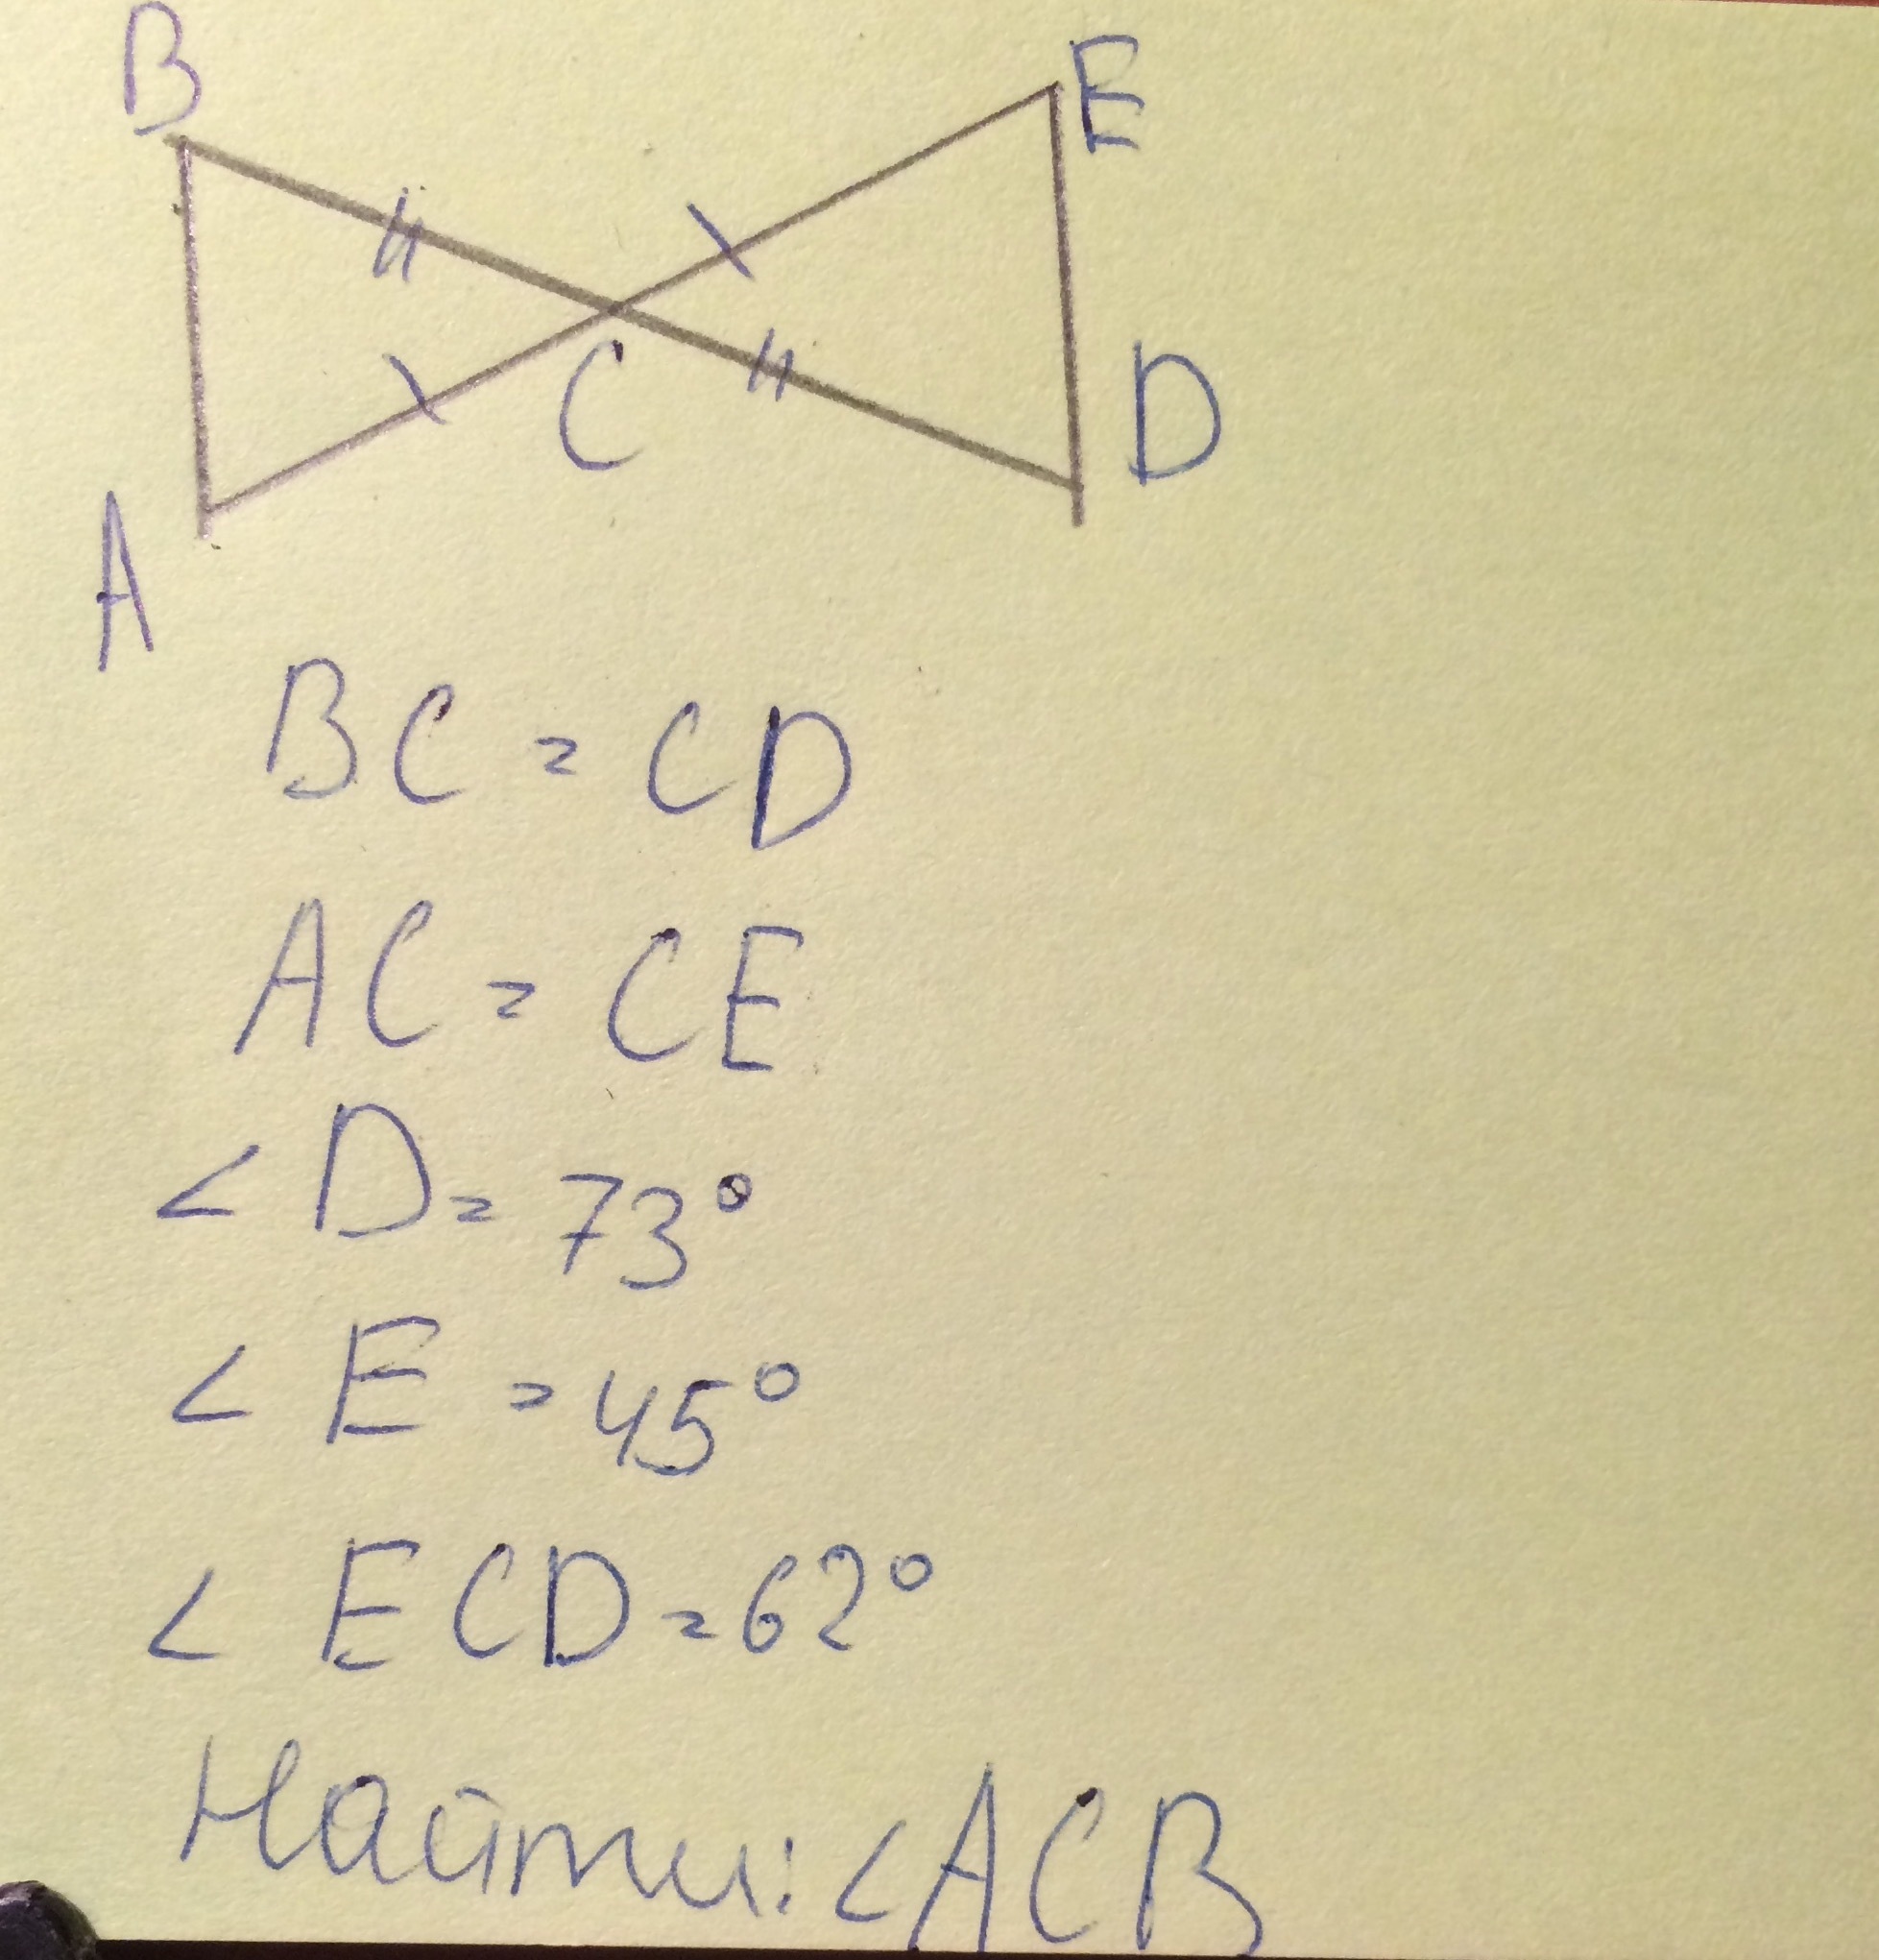 B
E
C
D
A
BC = CD
AC = CE
< D = 73°
< E = 45°
< ECD = 62°
Найти: < ACB